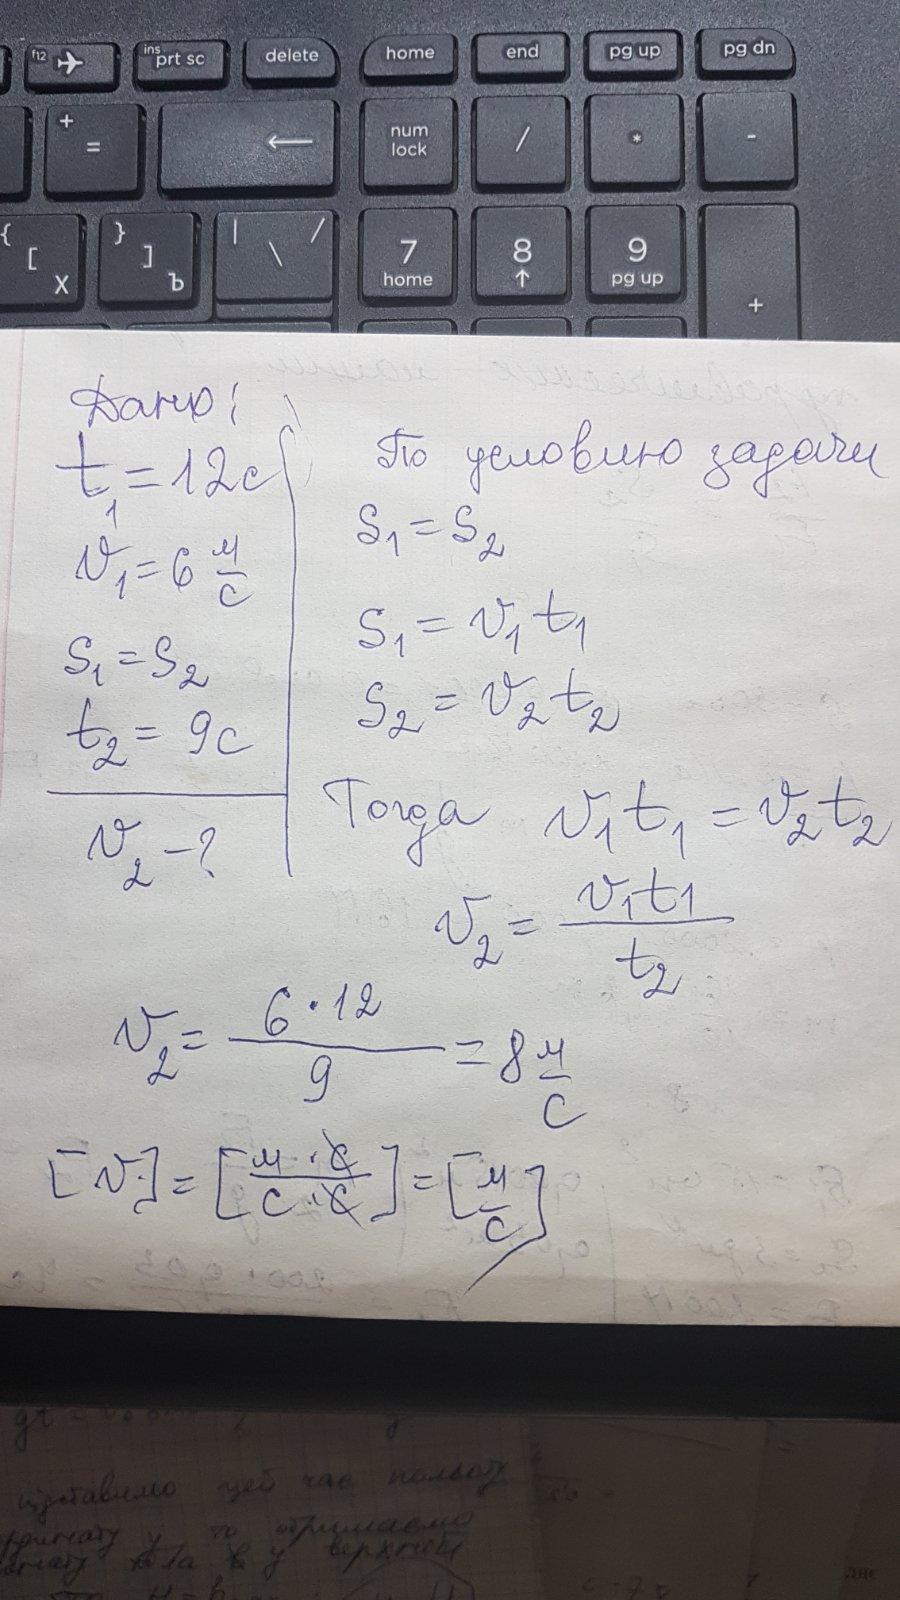 f12 ins prt sc delete home end pg up pg dn
+ = ← num lock / * -
{ [ Х } ] Ъ | \ / 7 home 8 ↑ 9 pg up +
Дано:
t₁ = 12с
v₁ = 6 м/с
S₁ = S₂
t₂ = 9с
v₂ - ?
По условию задачи
S₁ = S₂
S₁ = v₁ t₁
S₂ = v₂ t₂
Тогда v₁ t₁ = v₂ t₂
v₂ = v₁t₁ / t₂
v₂ = 6 · 12 / 9 = 8 м/с
[v] = [м · с / с · с] = [м/с]
цей час польоту
у то отримаємо